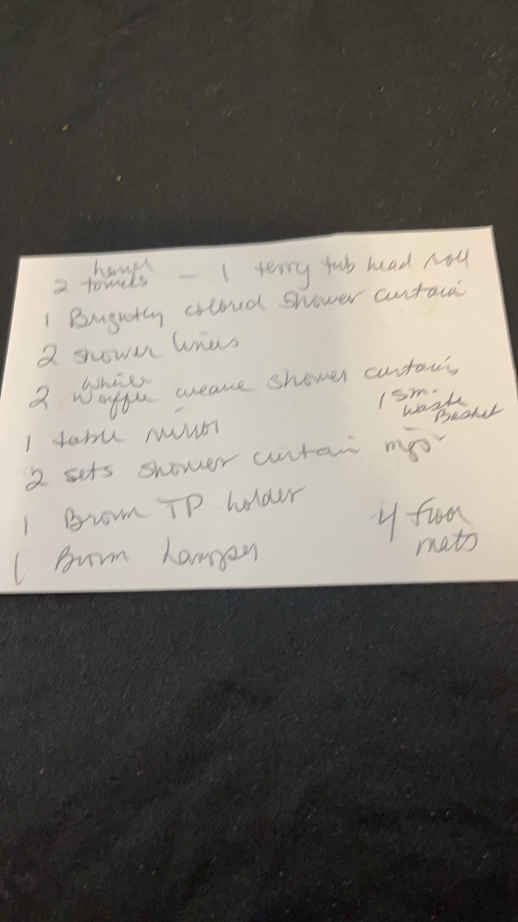 2 hand towels - 1 terry tub head roll
1 Brightly colored shower curtain
2 shower liners
2 white waffle weave shower curtains
1 table mirror
1 sm. waste Basket
2 sets shower curtain rings
1 Brown TP holder
1 Brown hamper
4 floor mats